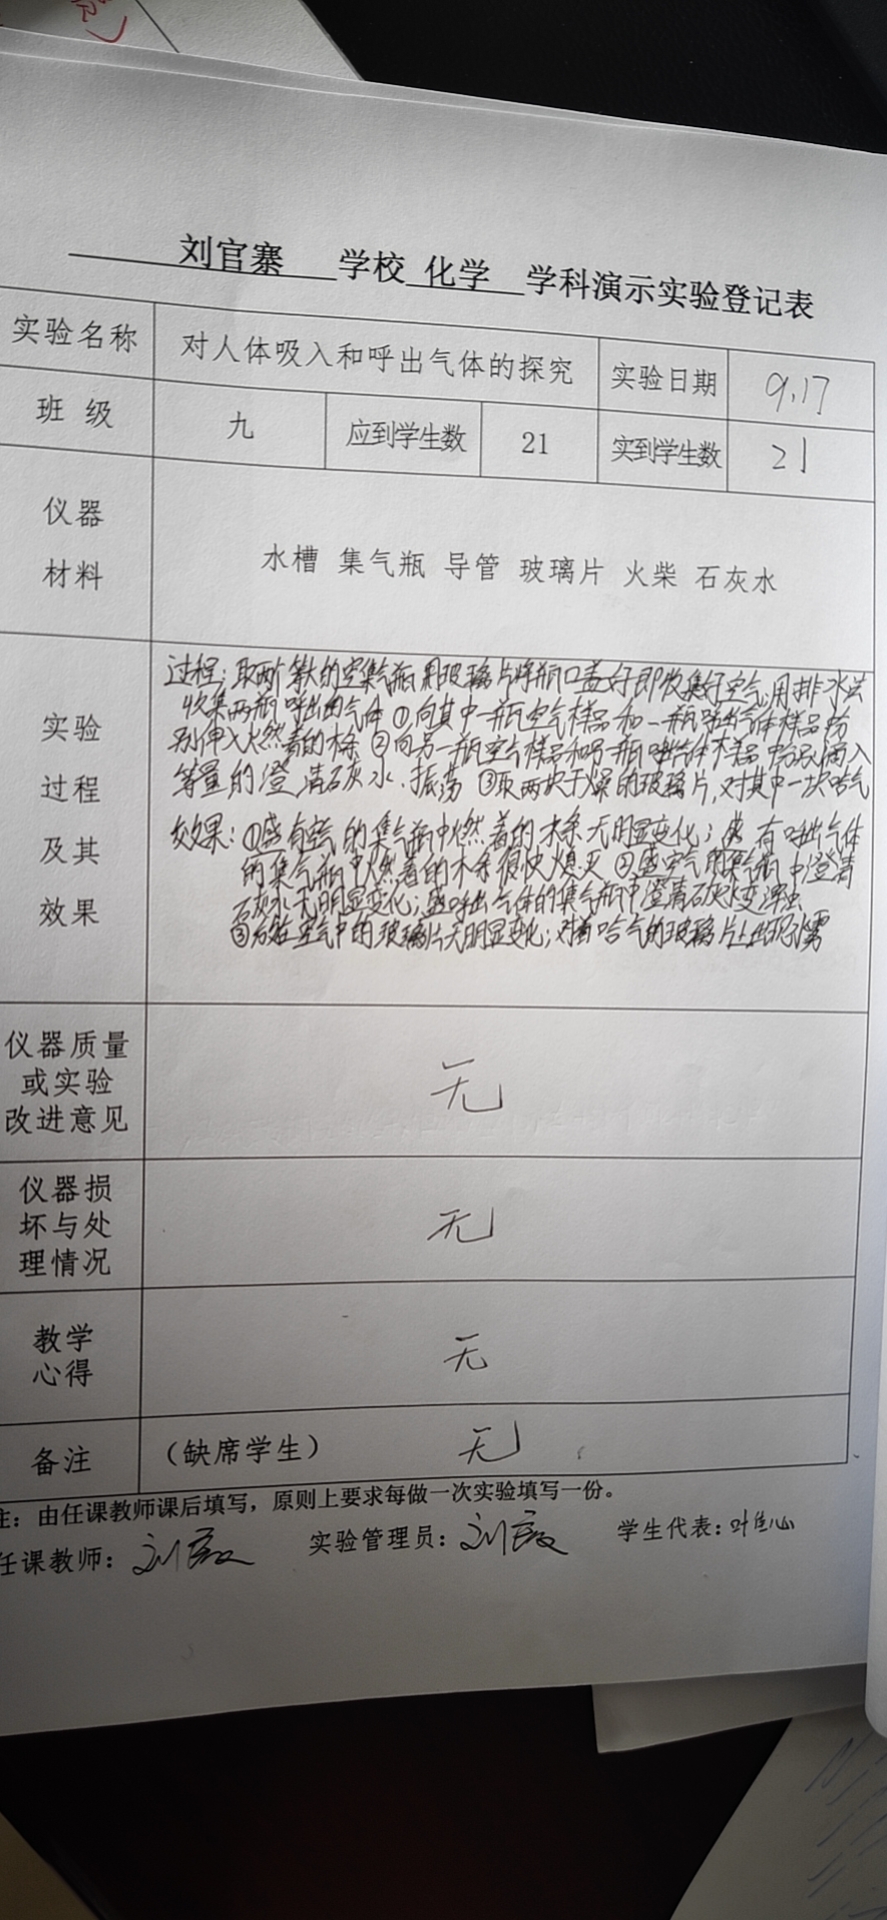 刘官寨 学校 化学 学科演示实验登记表
实验名称 对人体吸入和呼出气体的探究 实验日期 9.17
班级 九 应到学生数 21 实到学生数 21
仪器
材料
水槽 集气瓶 导管 玻璃片 火柴 石灰水
实验
过程
及其
效果
过程:取两个等大的空集气瓶用玻璃片将瓶口盖好即收集好空气,用排水法
收集两瓶呼出的气体①向其中一瓶空气样品和一瓶呼出气体样品分
别伸入燃着的木条②向另一瓶空气样品和另一瓶呼出气体样品中分别滴入
等量的澄清石灰水、振荡③取两块干燥的玻璃片,对其中一块哈气
效果:①盛有空气的集气瓶中燃着的木条无明显变化;盛有呼出气体
的集气瓶中燃着的木条很快熄灭②盛空气的集气瓶中澄清
石灰水无明显变化;盛呼出气体的集气瓶中澄清石灰水变浑浊
③放在空气中的玻璃片无明显变化;对着哈气的玻璃片上出现水雾
仪器质量
或实验
改进意见
无
仪器损
坏与处
理情况
无
教学
心得
无
备注 (缺席学生) 无
注:由任课教师课后填写,原则上要求每做一次实验填写一份。
任课教师: 实验管理员: 学生代表: